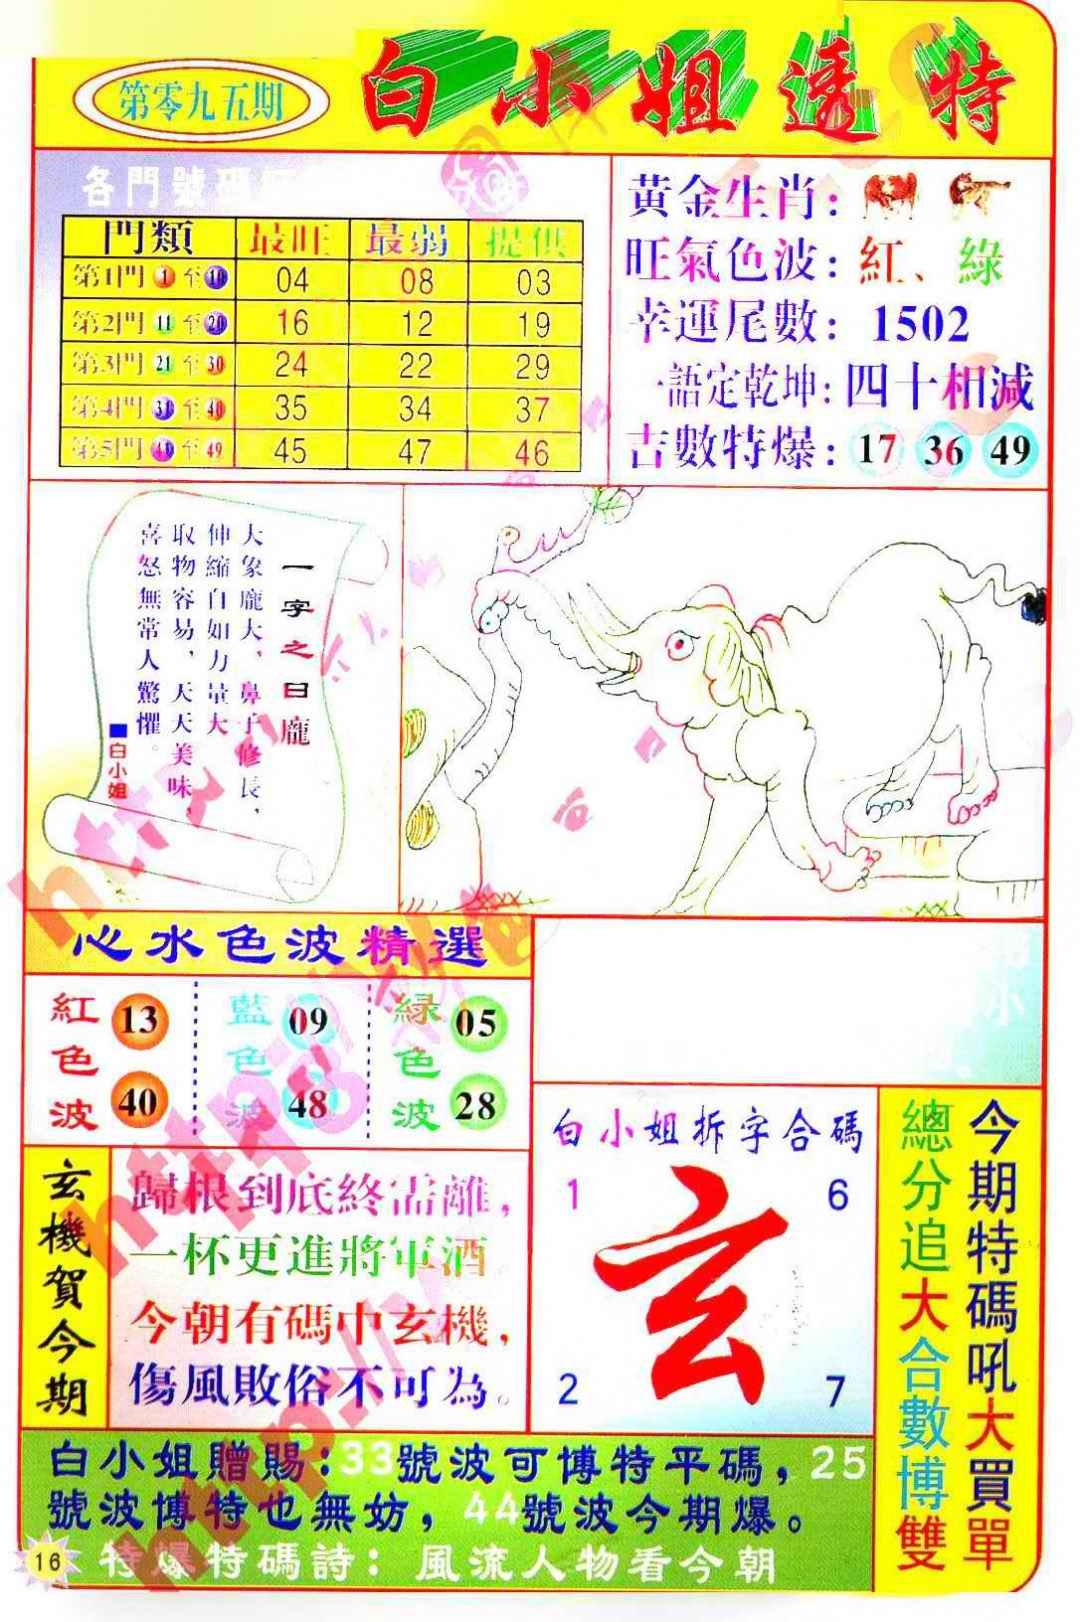 第零九五期
白小姐透特
各門號碼
門類 最旺 最弱 提供
第1門 1 至 10 04 08 03
第2門 11 至 20 16 12 19
第3門 21 至 30 24 22 29
第4門 31 至 40 35 34 37
第5門 40 至 49 45 47 46
黃金生肖:
旺氣色波:紅、綠
幸運尾數:1502
一語定乾坤:四十相減
吉數特爆:17 36 49
一字之曰龐
大象龐大,鼻子修長,
伸縮自如力量大
取物容易,天天美味,
喜怒無常人驚懼。
■白小姐
心水色波精選
紅色波 13 40
藍色波 09 48
緑色波 05 28
玄機賀今期
歸根到底終需離,
一杯更進將軍酒
今朝有碼中玄機,
傷風敗俗不可為。
白小姐拆字合碼
1 6
玄
2 7
今期特碼吼大買單
總分追大合數博雙
白小姐贈賜:33號波可博特平碼,25
號波博特也無妨,44號波今期爆。
特爆特碼詩:風流人物看今朝
16